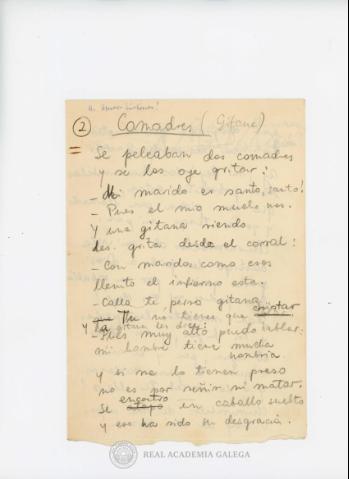 2
Comadres (Gitana)
Se peleaban dos comadres
y se las oye gritar:
- Mi marido es santo, santo!
- Pues el mio mucho mas.
Y una gitana riendo
les grita desde el corral:
- Con maridos como esos
llenito el infierno esta.
- Calla te perra gitana
Tu no tienes que
y la gitana les dice:
- Pues muy alto puedo hablar:
mi hombre tiene mucha
hombria.
y si me lo tienen preso
no es por reñir ni matar.
Se encontro un caballo suelto
y esa ha sido su desgracia.
REAL ACADEMIA GALEGA